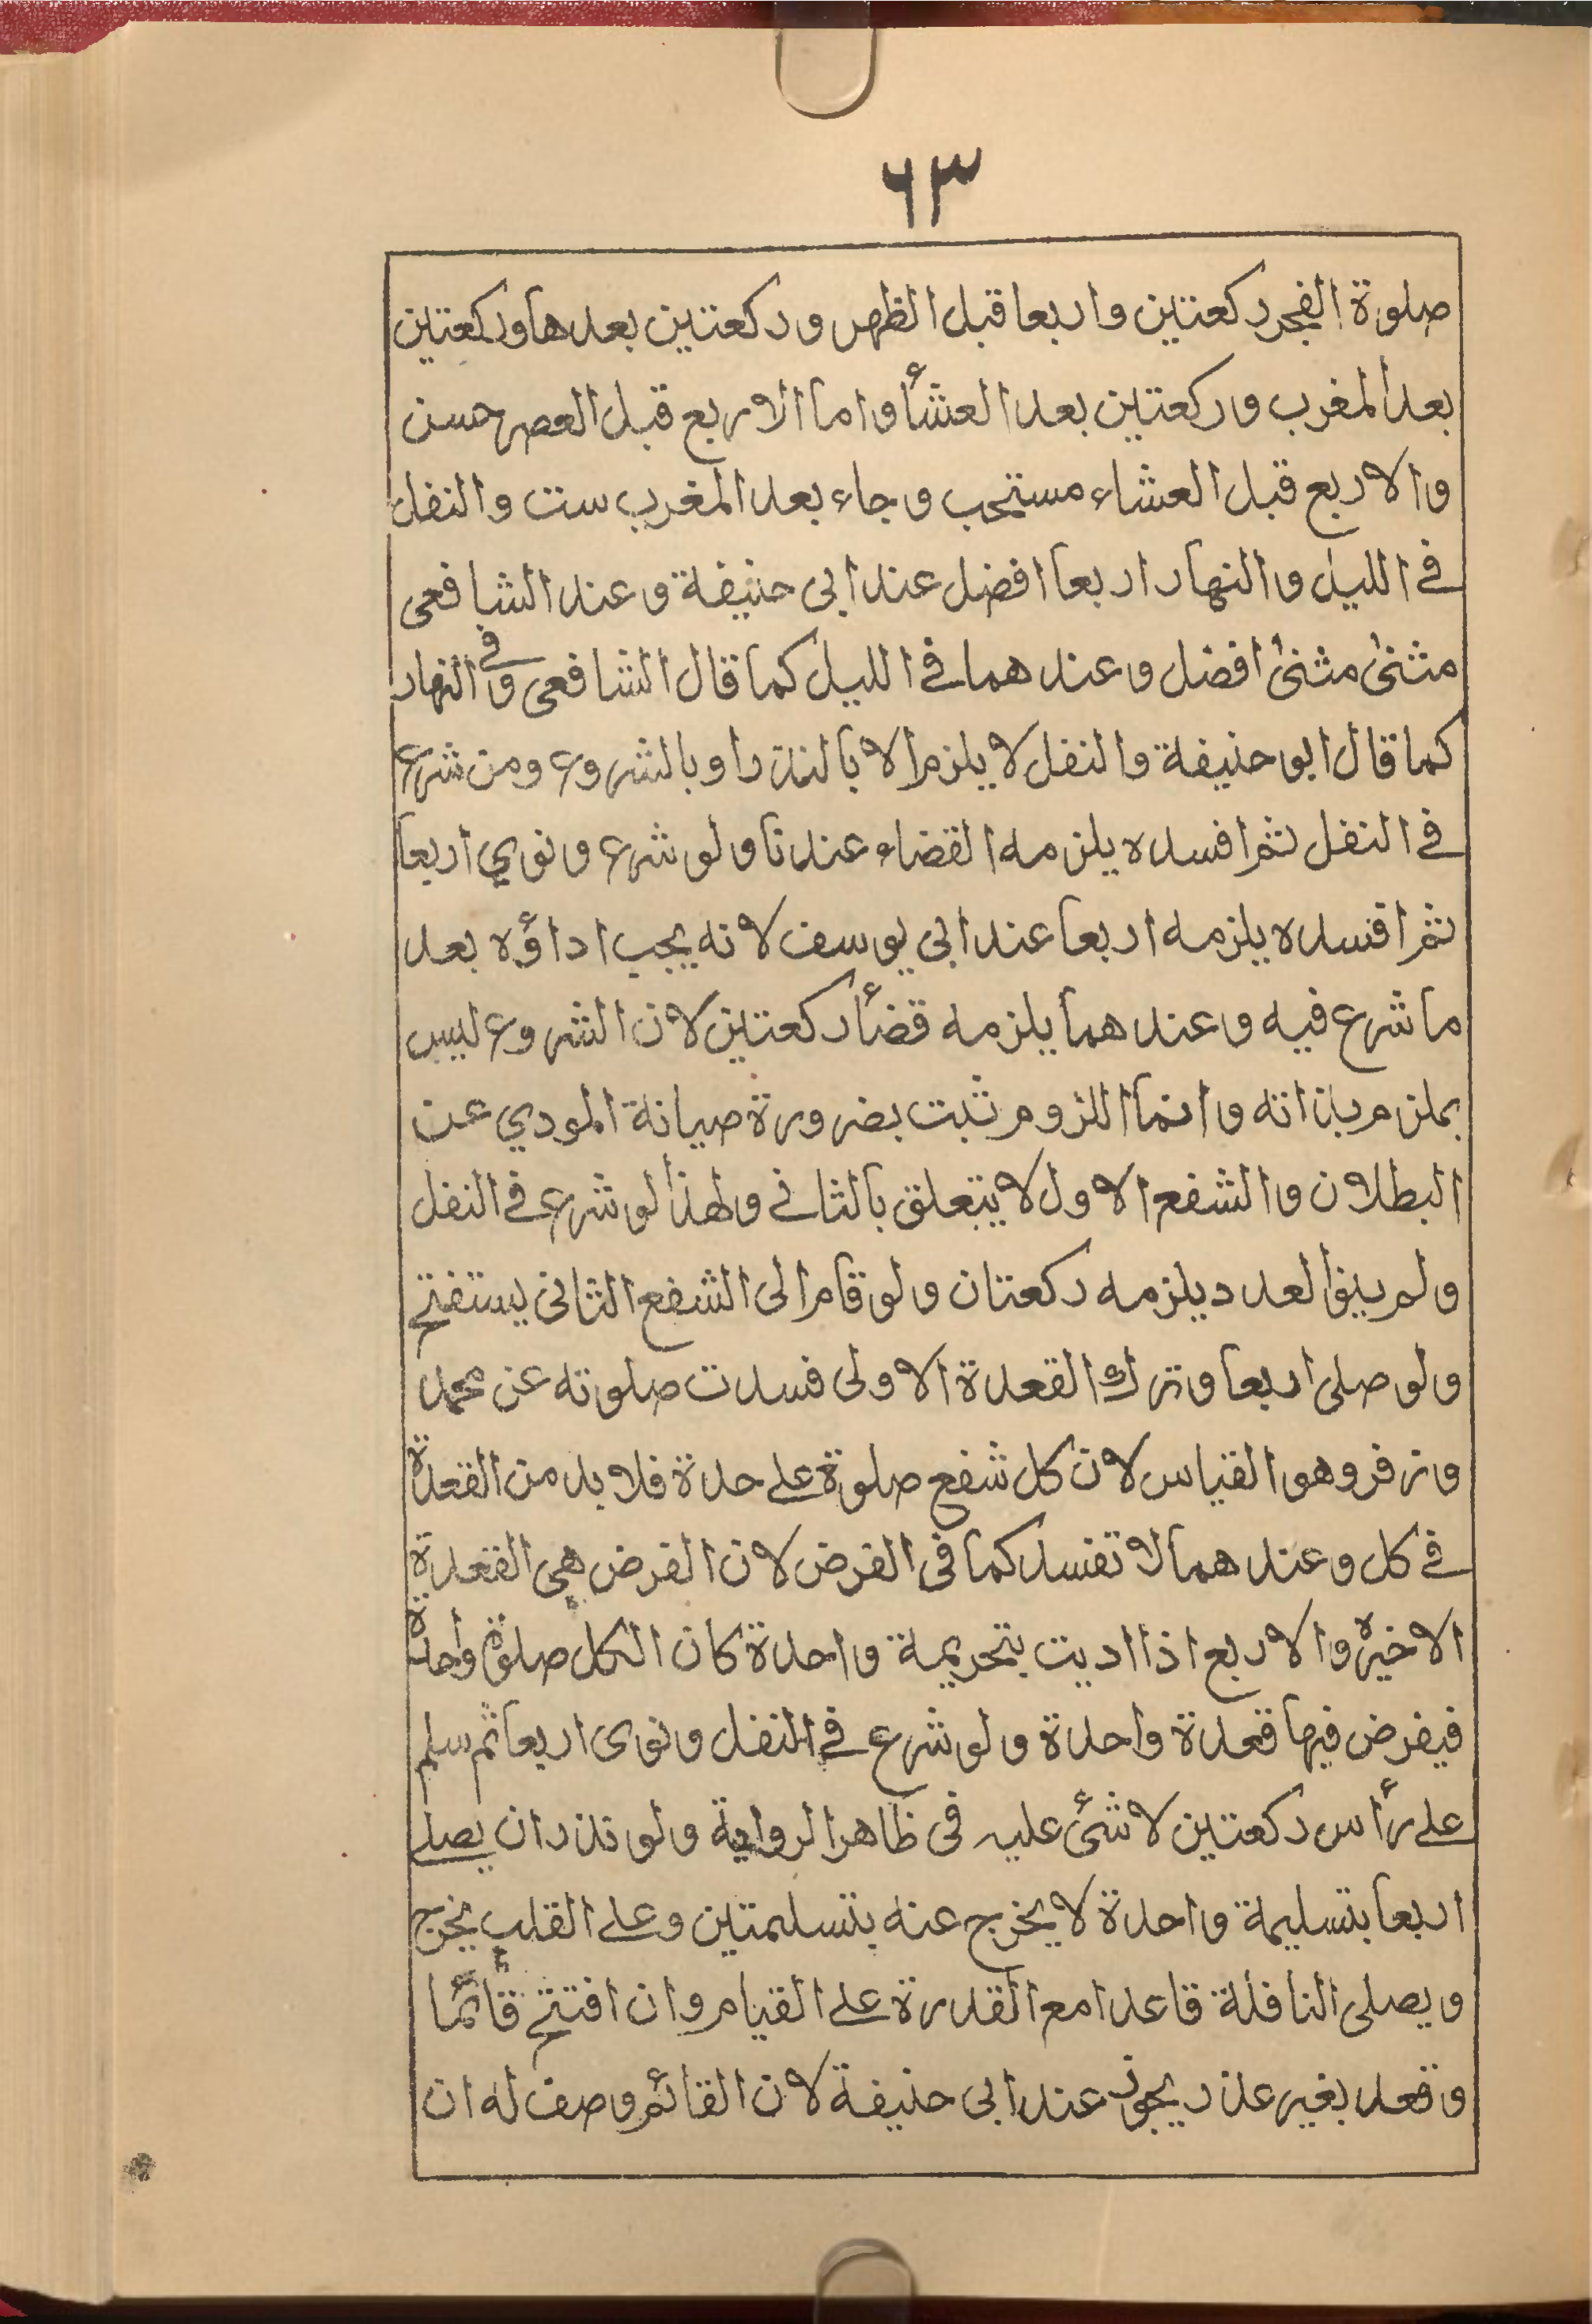 ٦٣
صلوة الفجر ركعتين واربعا قبل الظهر وركعتين بعدها وركعتين
بعد المغرب وركعتين بعد العشأ واما الاربع قبل العصر حسن
والاربع قبل العشاء مستحب وجاء بعد المغرب ست والنفل
في الليل والنهار اربعا افضل عند ابى حنيفة وعند الشافعى
مثنىٰ مثنىٰ افضل وعندهما في الليل كما قال الشافعى وفي النهار
كما قال ابو حنيفة والنفل لا يلزم الا بالنذر او بالشروع ومن شرع
في النفل ثم افسده يلزمه القضاء عندنا ولو شرع ونوي اربعا
ثم افسده يلزمه اربعا عند ابي يوسف لانه يجب اداؤه بعد
ما شرع فيه وعندهما يلزمه قضأ ركعتين لان الشروع ليس
بملزم بذاته وانما اللزوم ثبت بضرورة صيانة المودي عن
البطلان والشفع الاول لا يتعلق بالثاني ولهذا لو شرع في النفل
ولم ينو العدد يلزمه ركعتان ولو قام الى الشفع الثانى يستفتح
ولو صلى اربعا وترك القعدة الاولى فسدت صلوته عن محمد
وزفر وهو القياس لان كل شفع صلوة على حدة فلا بد من القعدة
في كل وعندهما لا تفسد كما فى الفرض لان الفرض هى القعدة
الاخيرة والاربع اذا اديت بتحريمة واحدة كان الكل صلوة واحدة
فيفرض فيها قعدة واحدة ولو شرع في النفل ونوى اربعا ثم سلم
على رأس ركعتين لا شئ عليه فى ظاهر الرواية ولو نذر ان يصلى
اربعا بتسليمة واحدة لا يخرج عنه بتسليمتين وعلى القلب يخرج
ويصلى النافلة قاعدا مع القدرة على القيام وان افتتح قائما
وقعد بغير عذر يجوز عند ابى حنيفة لان القائم وصف له ان